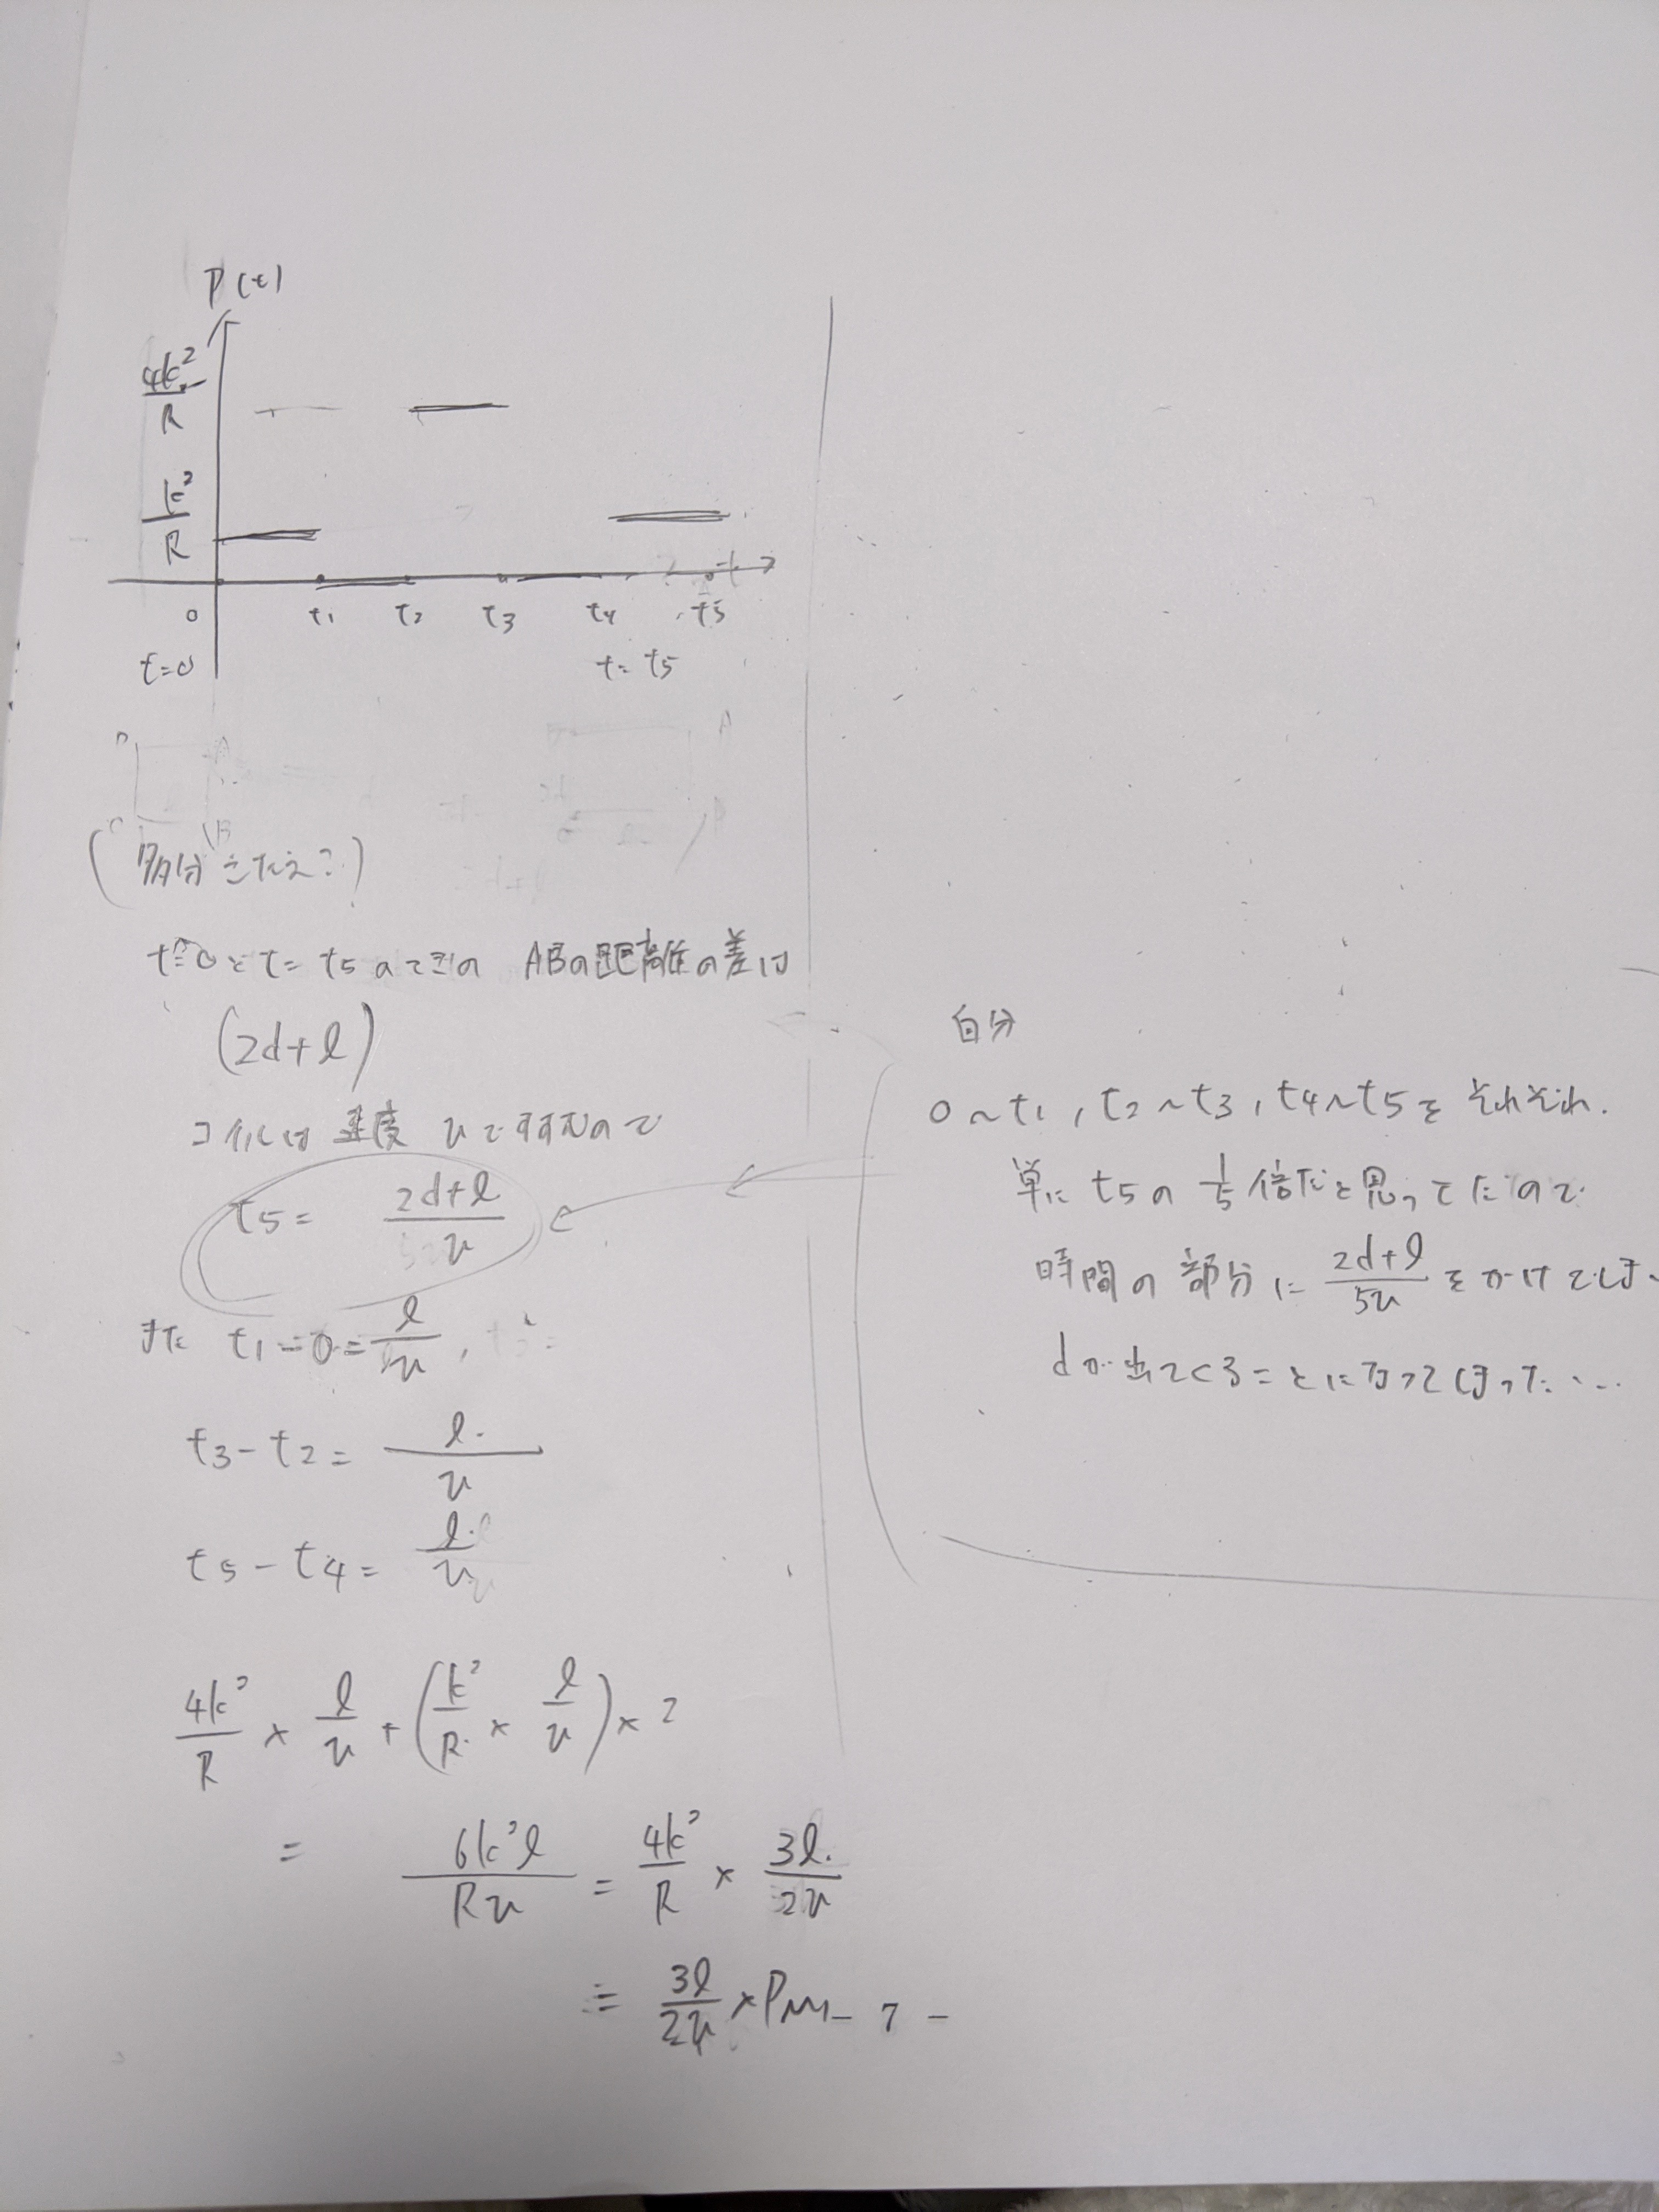 P(t)
4k²/R
k²/R
0 t₁ t₂ t₃ t₄ t₅ t
t=0 t=t₅
D A
C B
(多分こたえ?)
t=0とt=t₅のときの ABの距離の差は
(2d+l)
コイルは速度 vですすむので
t₅= (2d+l)/v
また t₁-0=l/v,
t₃-t₂= l/v
t₅-t₄= l/v
4k²/R × l/v + (k²/R × l/v) × 2
= 6k²l/Rv = 4k²/R × 3l/2v
= 3l/2v × PM
- 7 -
自分
0~t₁, t₂~t₃, t₄~t₅を それぞれ.
単に t₅の 1/5 倍だと思ってたので
時間の 部分に (2d+l)/5v をかけてしま
dが出てくることになってしまった…